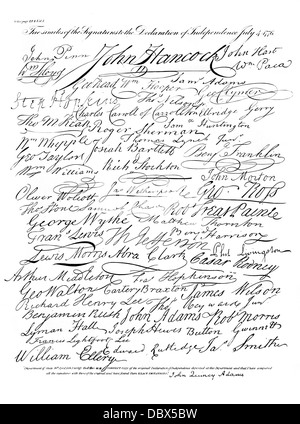 Fac similes of the Signatures to the Declaration of Independence July 4. 1776.
John Penn John Hancock John Hart
Wm Paca
Geo Read Wm Hooper Saml Adams
Step Hopkins Geo Clymer
Charles Carroll of Carrollton Elbridge Gerry
Tho M:Kean Roger Sherman Saml Huntington
Wm Whipple Thomas Lynch Junr
Geo Taylor Josiah Bartlett Benj Franklin
Wm Williams Richd Stockton John Morton
Oliver Wolcott Jno Witherspoon Geo Ross
Thos Stone Samuel Chase Robt Treat Paine
George Wythe Matthew Thornton
Frans Lewis Th Jefferson Benj Harrison
Lewis Morris Abra Clark Caesar Rodney
Phil Livingston
Arthur Middleton Fras Hopkinson
Geo Walton Carter Braxton James Wilson
Richard Henry Lee Thos Heyward Junr
Benjamin Rush John Adams Robt Morris
Lyman Hall Joseph Hewes Button Gwinnett
Francis Lightfoot Lee
William Ellery Edward Rutledge Jas Smith
John Quincy Adams
alamy
DBX5BW